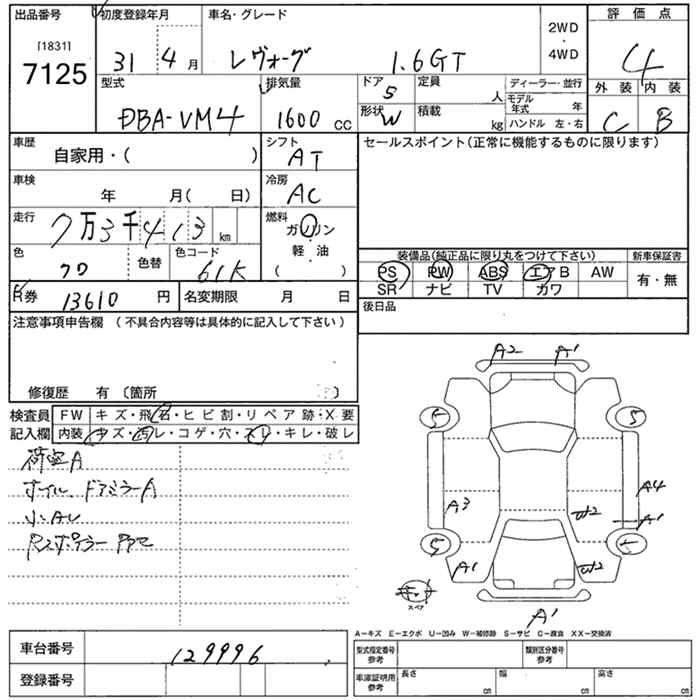 出品番号 初度登録年月 車名・グレード 評価点
[1831]
7125
31 年 4 月 レヴォーグ 1.6GT
2WD
・
4WD
4
型式 排気量 ドア 定員 ディーラー・並行 外装 内装
DBA-VM4 1600 cc 5 人
モデル年式 年
形状 W 積載 kg ハンドル 左・右 C B
車歴 シフト セールスポイント(正常に機能するものに限ります)
自家用・( ) AT
車検 冷房
年 月( 日) AC
走行 7万3千413 km 燃料
ガソリン
軽・油
( )
色 色替 色コード
クロ 61K
装備品(純品に限り丸をつけて下さい) 新車保証書
PS PW ABS エアB AW 有・無
SR ナビ TV カワ
R券 13610 円 名変期限 月 日 後日品
注意事項申告欄 (不具合内容等は具体的に記入して下さい)
修復歴 有 〔箇所 〕
検査員 FW キズ・飛石・ヒビ割・リペア跡・X要
記入欄 内装 キズ・汚レ・コゲ・穴・スレ・キレ・破レ
荷室A
ホイル ドアミラーA
小AU
A2 A1
5 5
A3 A4
W2 A1
5 5
A1 W2
スペア
A1
A-キズ E-エクボ U-凹み W-補修跡 S-サビ C-腐食 XX-交換済
車台番号 129996
登録番号
型式指定番号 参考 類別区分番号 参考
車庫証明用 参考 長さ cm 幅 cm 高さ cm